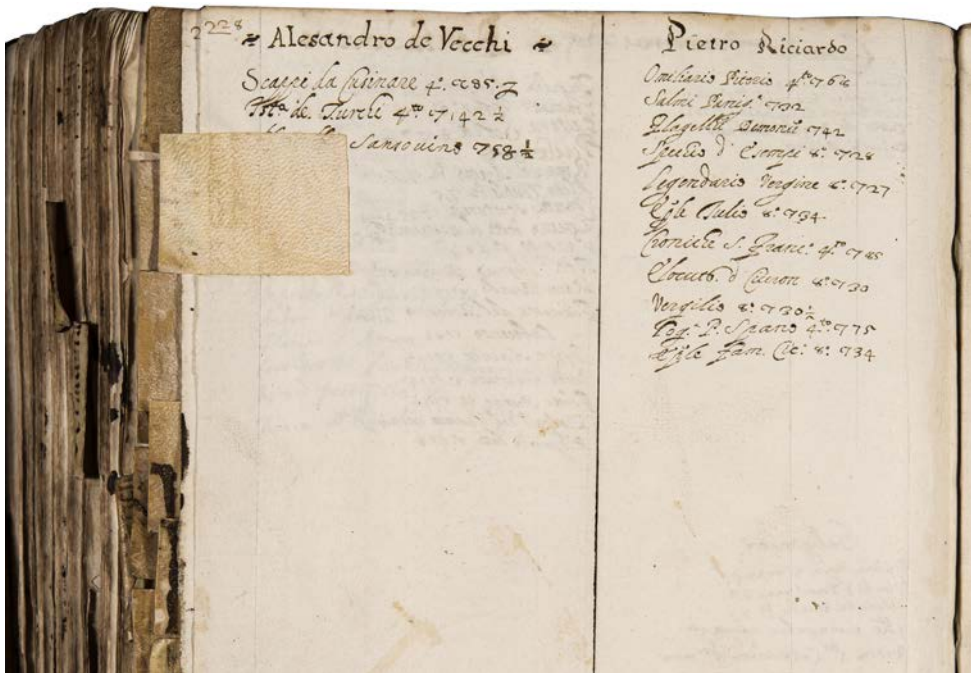 228
Alesandro de Vecchi
Scappi da Cusinare 4º. c 85.
Istª. de Turchi 4ᵗᵒ c 142 ½
Sansovino c 58 ½
Pietro Riciardo
Omiliario Vitorio 4ᵗᵒ c 68
Salmi Panigª. c 32
Flagellũ Demonũ c 42
Specio d' Esempi 8º. c 28
Legendario Vergine 8º. c 27
Tulio 8º. c 34
Croniche S. Francº. 4ᵗᵒ c 85
d' Ciceron 8º. c 30
Vergilio 8º. c 30 ½
P. Spano 4ᵗᵒ. c 75
Fam. Cic. 8º. c 34